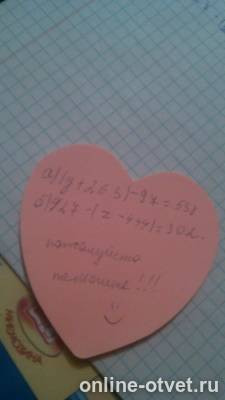 а) (y + 263) - 97 = 538
б) 927 - (z - 444) = 302.
пожалуйста
помогите!!!
online-otvet.ru